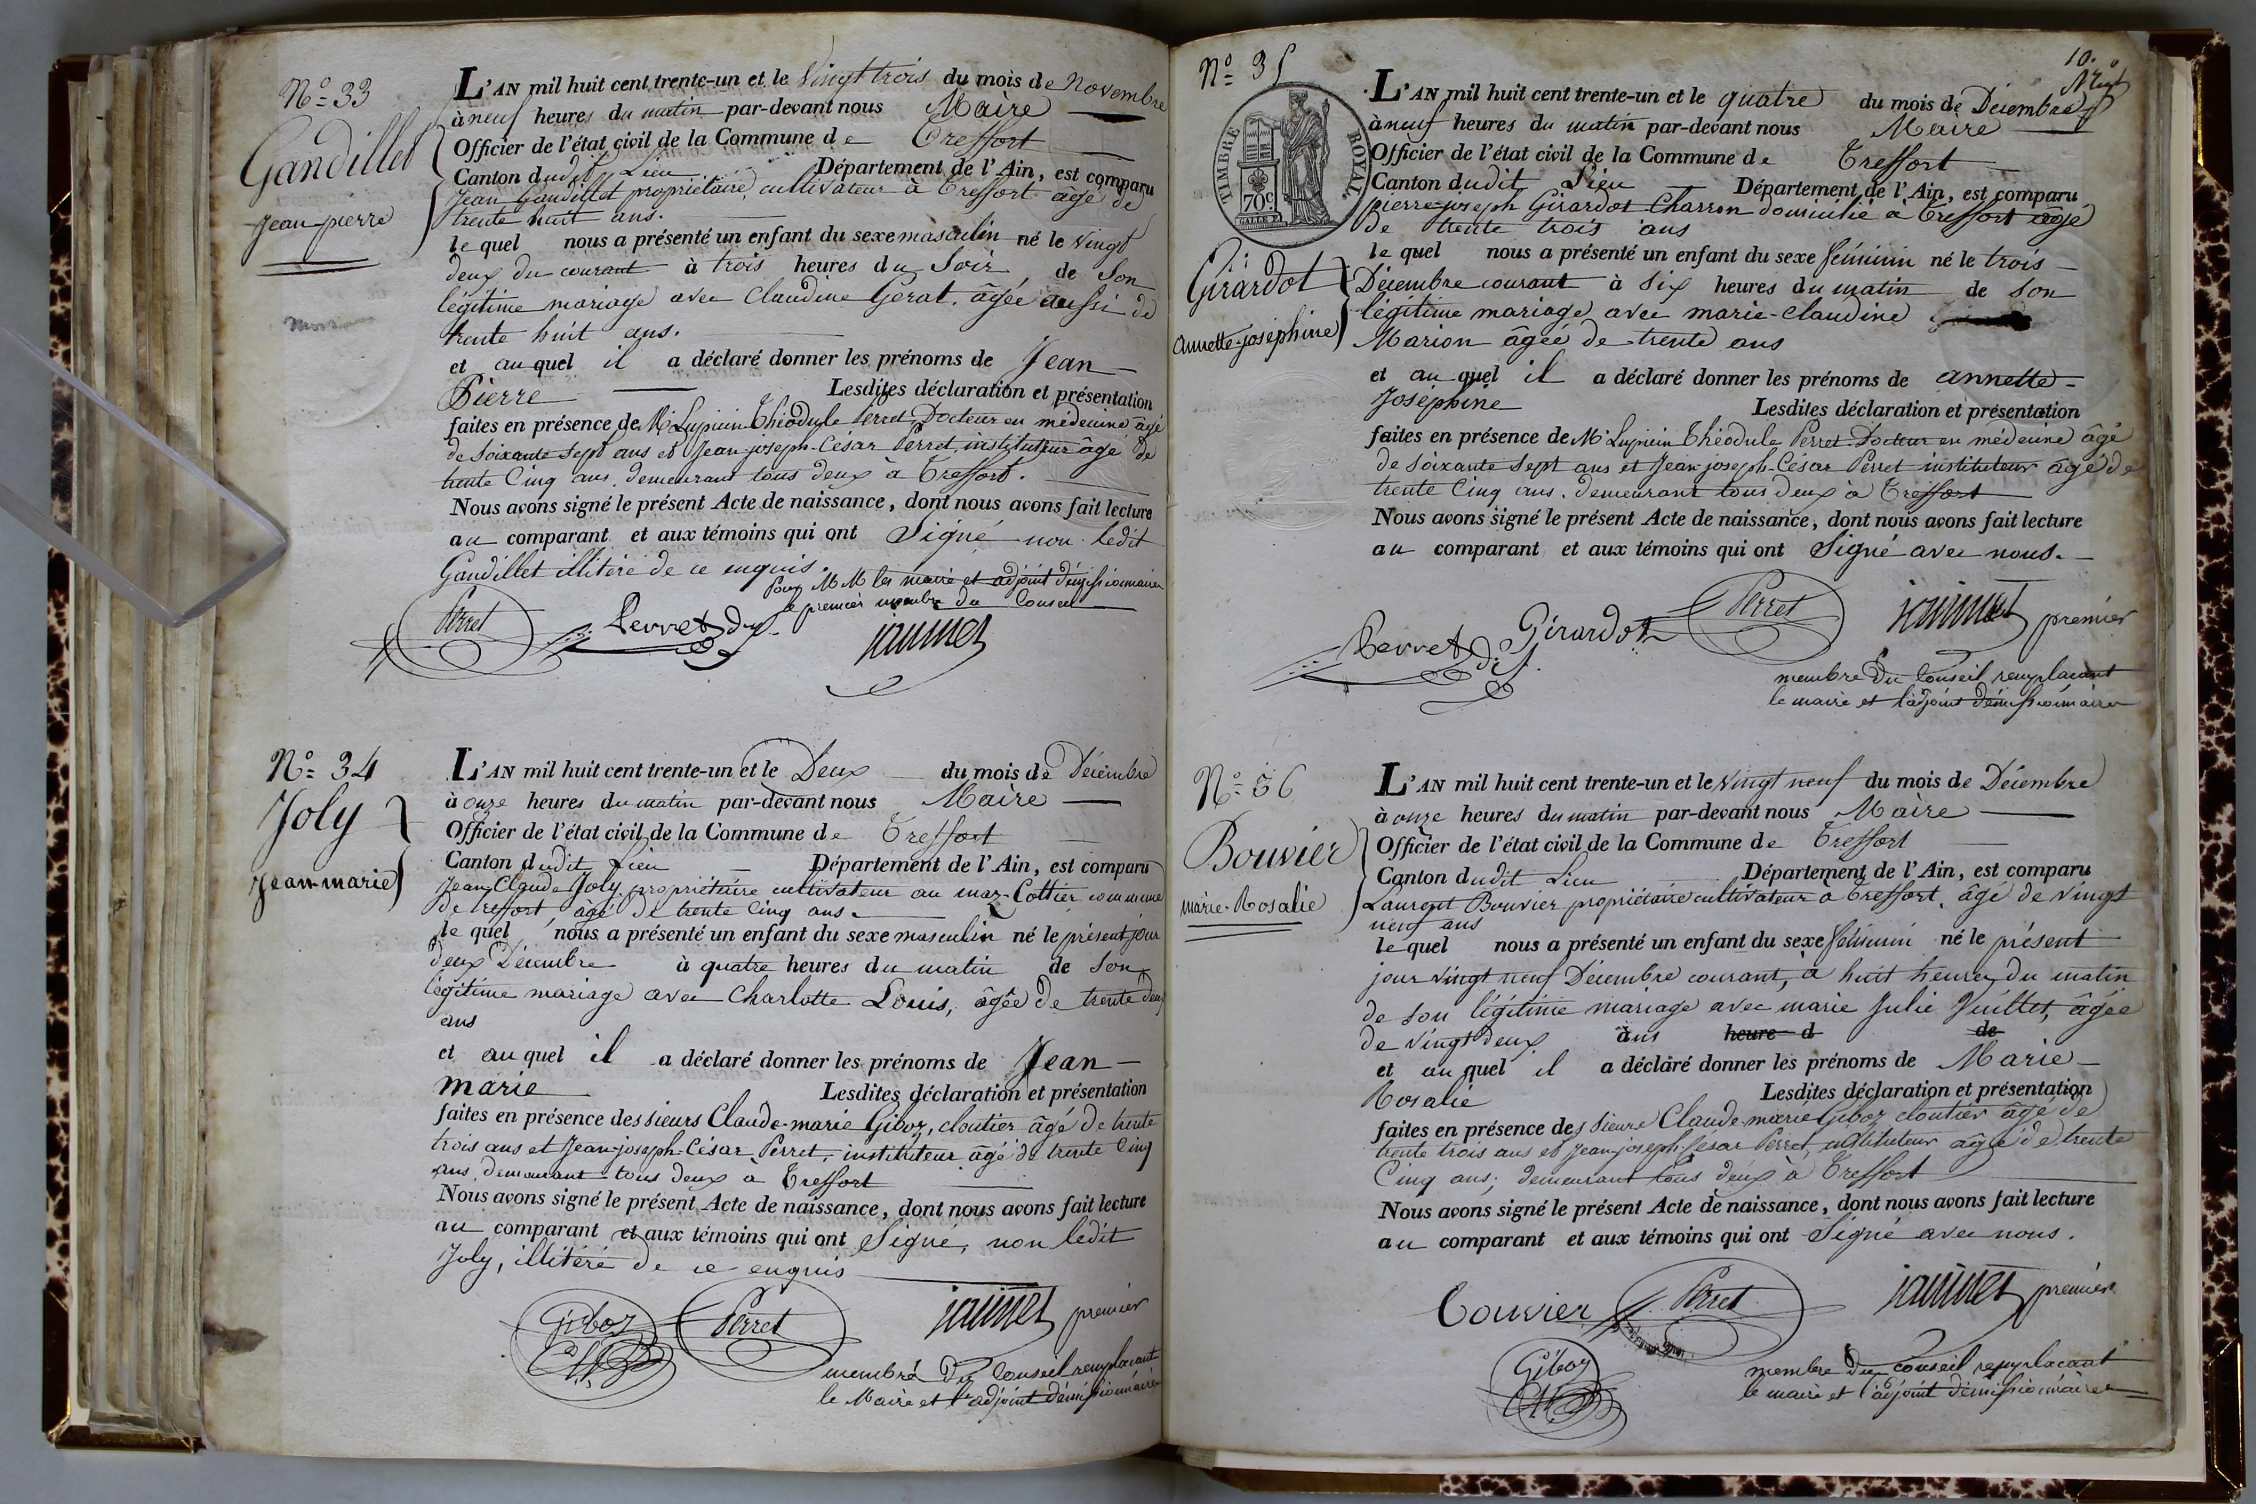 N.o 33
Gandillet
Jean-pierre
L'AN mil huit cent trente-un et le Vingt trois du mois de Novembre
à neuf heures du matin par-devant nous Maire
Officier de l'état civil de la Commune de Treffort
Canton dudit Lieu Département de l'Ain, est comparu
Jean Gandillet propriétaire cultivateur à Treffort âgé de
trente huit ans.
le quel nous a présenté un enfant du sexe masculin né le vingt
deux du courant à trois heures du Soir de Son
légitime mariage avec Claudine Gerat. âgée aussi de
trente huit ans.
et auquel il a déclaré donner les prénoms de Jean
Pierre Lesdites déclaration et présentation
faites en présence de Mr Lupicin Théodule Perret Docteur en médecine âgé
de Soixante Sept ans et Jean-joseph-César Perret, instituteur âgé de
trente Cinq ans. demeurant tous deux à Treffort.
Nous avons signé le présent Acte de naissance, dont nous avons fait lecture
au comparant et aux témoins qui ont Signé non ledit
Gandillet illitéré de ce enquis.
Pour M M les maire et adjoint démissionnaires
le premier membre du Conseil
Perret Perret d.m. jaunet
N.o 34
Joly
Jean-marie
L'AN mil huit cent trente-un et le Deux du mois de Décembre
à onze heures du matin par-devant nous Maire
Officier de l'état civil de la Commune de Treffort
Canton dudit Lieu Département de l'Ain, est comparu
Jean-Claude Joly, propriétaire cultivateur au mas-Cottier commune
de treffort, âgé de trente Cinq ans.
le quel nous a présenté un enfant du sexe masculin né le présent jour
deux Décembre à quatre heures du matin de Son
légitime mariage avec Charlotte Louis, âgée de trente deux
ans
et auquel il a déclaré donner les prénoms de Jean
marie Lesdites déclaration et présentation
faites en présence des sieurs Claude-marie Giboz, cloutier âgé de trente
trois ans et Jean-joseph-César Perret, instituteur âgé de trente Cinq
ans, demeurant tous deux à Treffort
Nous avons signé le présent Acte de naissance, dont nous avons fait lecture
au comparant et aux témoins qui ont Signé, non ledit
Joly, illitéré de ce enquis
Giboz Perret jaunet premier
membre du Conseil remplacant
le Maire et l'adjoint démissionnaires
10.
N.o 35
TIMBRE ROYAL
70c
Girardot
annette-joséphine
L'AN mil huit cent trente-un et le quatre du mois de Décembre
à neuf heures du matin par-devant nous Maire
Officier de l'état civil de la Commune de Treffort
Canton dudit Lieu Département de l'Ain, est comparu
pierre-joseph Girardot Charron domicilié à Treffort âgé
de trente trois ans
le quel nous a présenté un enfant du sexe féminin né le trois
Décembre courant à Six heures du matin de son
légitime mariage avec marie-claudine
Marion âgée de trente ans
et au quel il a déclaré donner les prénoms de annette
Joséphine Lesdites déclaration et présentation
faites en présence de Mr Lupicin Théodule Perret Docteur en médecine âgé
de Soixante Sept ans et Jean joseph-César Perret instituteur âgé de
trente Cinq ans. demeurant tous deux à Treffort
Nous avons signé le présent Acte de naissance, dont nous avons fait lecture
au comparant et aux témoins qui ont Signé avec nous.
Perret d.m. Girardot Perret jaunet premier
membre du Conseil remplacant
le maire et l'adjoint démissionnaires
N.o 36
Bouvier
marie-Rosalie
L'AN mil huit cent trente-un et le Vingt neuf du mois de Décembre
à onze heures du matin par-devant nous Maire
Officier de l'état civil de la Commune de Treffort
Canton dudit Lieu Département de l'Ain, est comparu
Laurent Bouvier propriétaire cultivateur à Treffort, âgé de vingt
neuf ans
le quel nous a présenté un enfant du sexe féminin né le présent
jour vingt neuf Décembre courant, à huit heures du matin
de son légitime mariage avec marie Julie Vuillet, âgée
de vingt deux ans heure d de
et au quel il a déclaré donner les prénoms de Marie
Rosalie Lesdites déclaration et présentation
faites en présence des sieurs Claude-marie Giboz cloutier âgé de
trente trois ans et Jean joseph César Perret, instituteur âgé de trente
Cinq ans; demeurant tous deux à Treffort
Nous avons signé le présent Acte de naissance, dont nous avons fait lecture
au comparant et aux témoins qui ont Signé avec nous.
Bouvier Perret jaunet premier
Giboz
membre du Conseil remplacant
le maire et l'adjoint démissionnaires